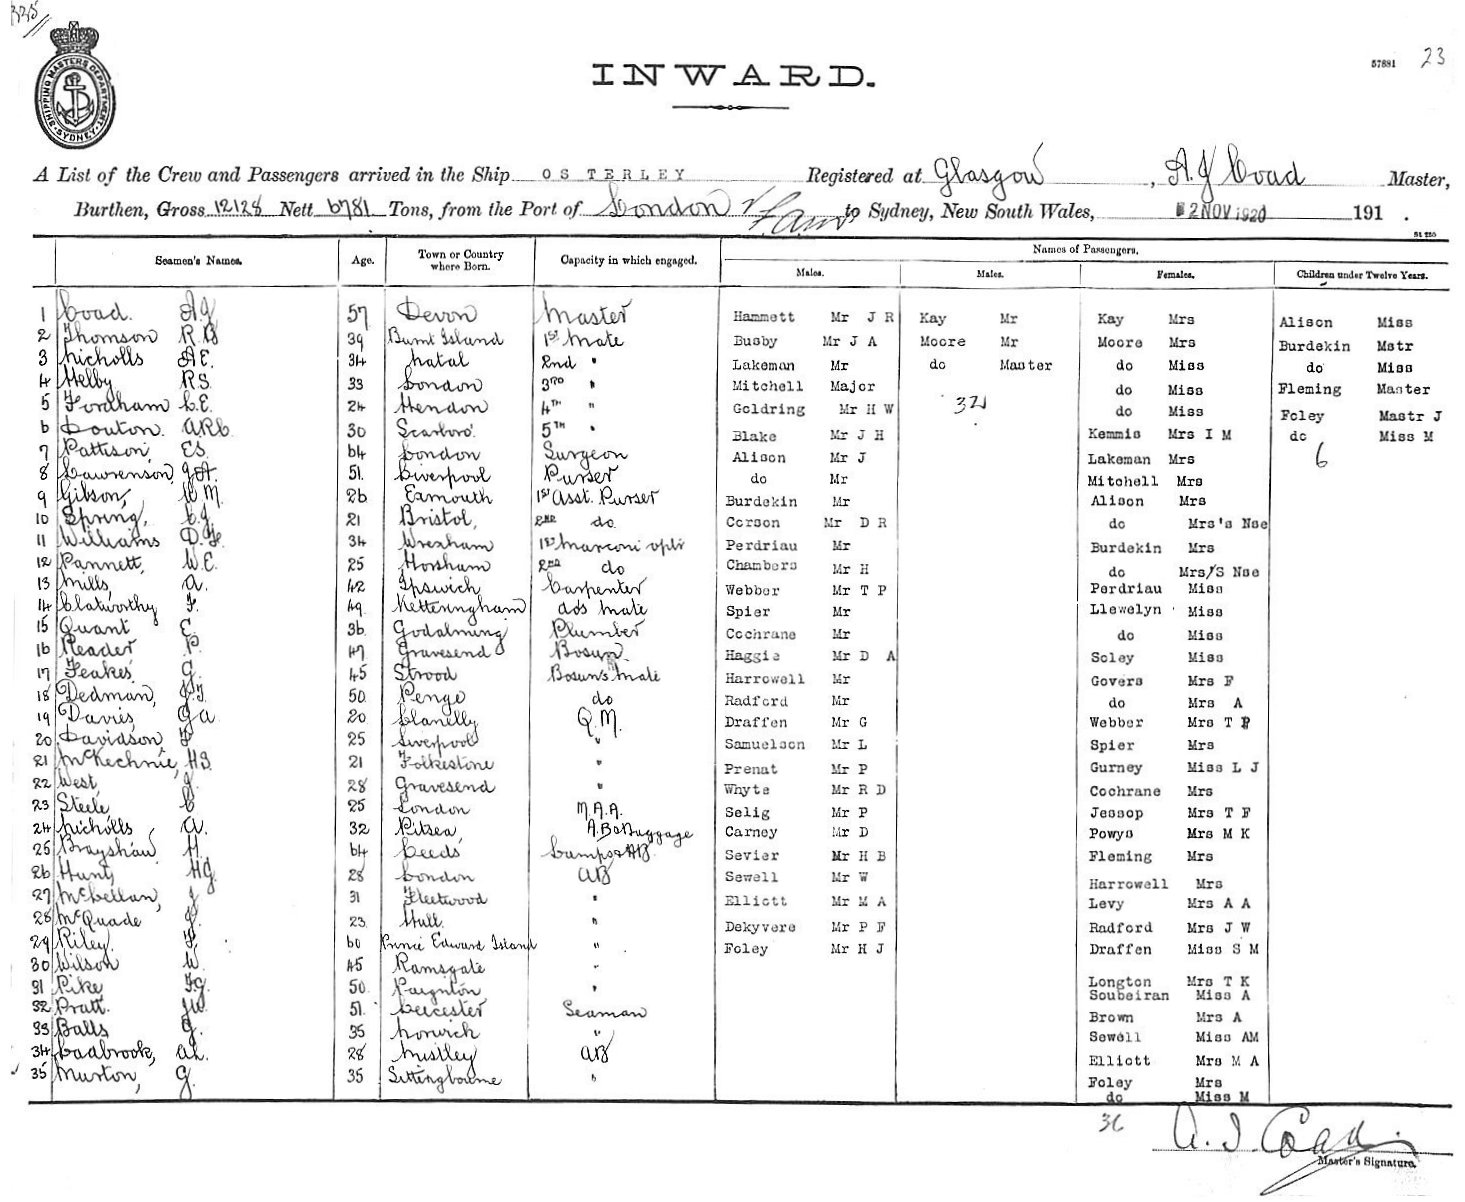 325
SHIPPING MASTERS DEPARTMENT SYDNEY
57881 23
INWARD.
A List of the Crew and Passengers arrived in the Ship OSTERLEY Registered at Glasgow, A J Coad Master,
Burthen, Gross 12128 Nett 6781 Tons, from the Port of London to Sydney, New South Wales, 12 NOV 1920 191 .
Seamen's Names. Age. Town or Country where Born. Capacity in which engaged. Names of Passengers.
Males. Males. Females. Children under Twelve Years.
1 Coad. A J 57 Devon Master
2 Thomson R B 39 Burnt Island 1st Mate
3 Nicholls A E. 34 Natal 2nd "
4 Helby R S. 33 London 3RD "
5 Fordham C. E. 24 Hendon 4TH "
6 Douton. A.R.C. 30 Scarboro. 5TH "
7 Pattison, E S. 64 London Surgeon
8 Lawrenson, J A. 51. Liverpool Purser
9 Gibson, W M. 26 Exmouth 1st Asst. Purser
10 Spring, C. J. 21 Bristol, 2ND do
11 Williams D. F. 34 Wrexham 1st Marconi optr
12 Pannett, W. E. 25 Horsham 2ND do
13 Mills, A. 42 Ipswich Carpenter
14 Clatworthy F. 49 Ketteringham do's mate
15 Quant E. 36. Godalming Plumber
16 Reader P. 47 Gravesend Bosun
17 Feakes G. 45 Strood Bosun's Mate
18 Dedman, J. F. 50. Penge do
19 Davies, G A. 20 Llanelly Q.M.
20 Davidson, F 25 Liverpool "
21 McKechnie, H S. 21 Folkestone "
22 West, J. 28 Gravesend "
23 Steele C 25 London M.A.A.
24 Nicholls A. 32 Pitsea A.B & Baggage
25 Brayshaw H 64 Leeds Lamps & AB
26 Hunt, H G. 28 London AB
27 McClellan, J 31 Fleetwood "
28 McQuade J. 23. Hull. "
29 Riley. F. 60 Prince Edward Island "
30 Wilson W. 45 Ramsgate "
31 Pike F G. 50. Paignton "
32 Pratt. J W. 51. Leicester Seaman
33 Balls G. 35 Norwich "
34 Cadbrook, A L. 28 Mistley AB
35 Murton, G. 35 Sittingbourne "
Hammett Mr J R
Busby Mr J A
Lakeman Mr
Mitchell Major
Goldring Mr H W
Blake Mr J H
Alison Mr J
do Mr
Burdekin Mr
Corson Mr D R
Perdriau Mr
Chambers Mr H
Webber Mr T P
Spier Mr
Cochrane Mr
Haggie Mr D A
Harrowell Mr
Radford Mr
Draffen Mr G
Samuelson Mr L
Prenat Mr P
Whyte Mr R D
Selig Mr P
Carney Mr D
Sevier Mr H B
Sewell Mr W
Elliott Mr M A
Dekyvere Mr P F
Foley Mr H J
Kay Mr
Moore Mr
do Master
32
Kay Mrs
Moore Mrs
do Miss
do Miss
do Miss
Kemmis Mrs I M
Lakeman Mrs
Mitchell Mrs
Alison Mrs
do Mrs's Nse
Burdekin Mrs
do Mrs/S Nse
Perdriau Miss
Llewelyn Miss
do Miss
Soley Miss
Govers Mrs F
do Mrs A
Webber Mrs T P
Spier Mrs
Gurney Miss L J
Cochrane Mrs
Jessop Mrs T F
Powys Mrs M K
Fleming Mrs
Harrowell Mrs
Levy Mrs A A
Radford Mrs J W
Draffen Miss S M
Longton Mrs T K
Soubeiran Miss A
Brown Mrs A
Sewell Miss AM
Elliott Mrs M A
Foley Mrs
do Miss M
36
Alison Miss
Burdekin Mstr
do Miss
Fleming Master
Foley Mastr J
do Miss M
6
A. J. Coad
Master's Signature.